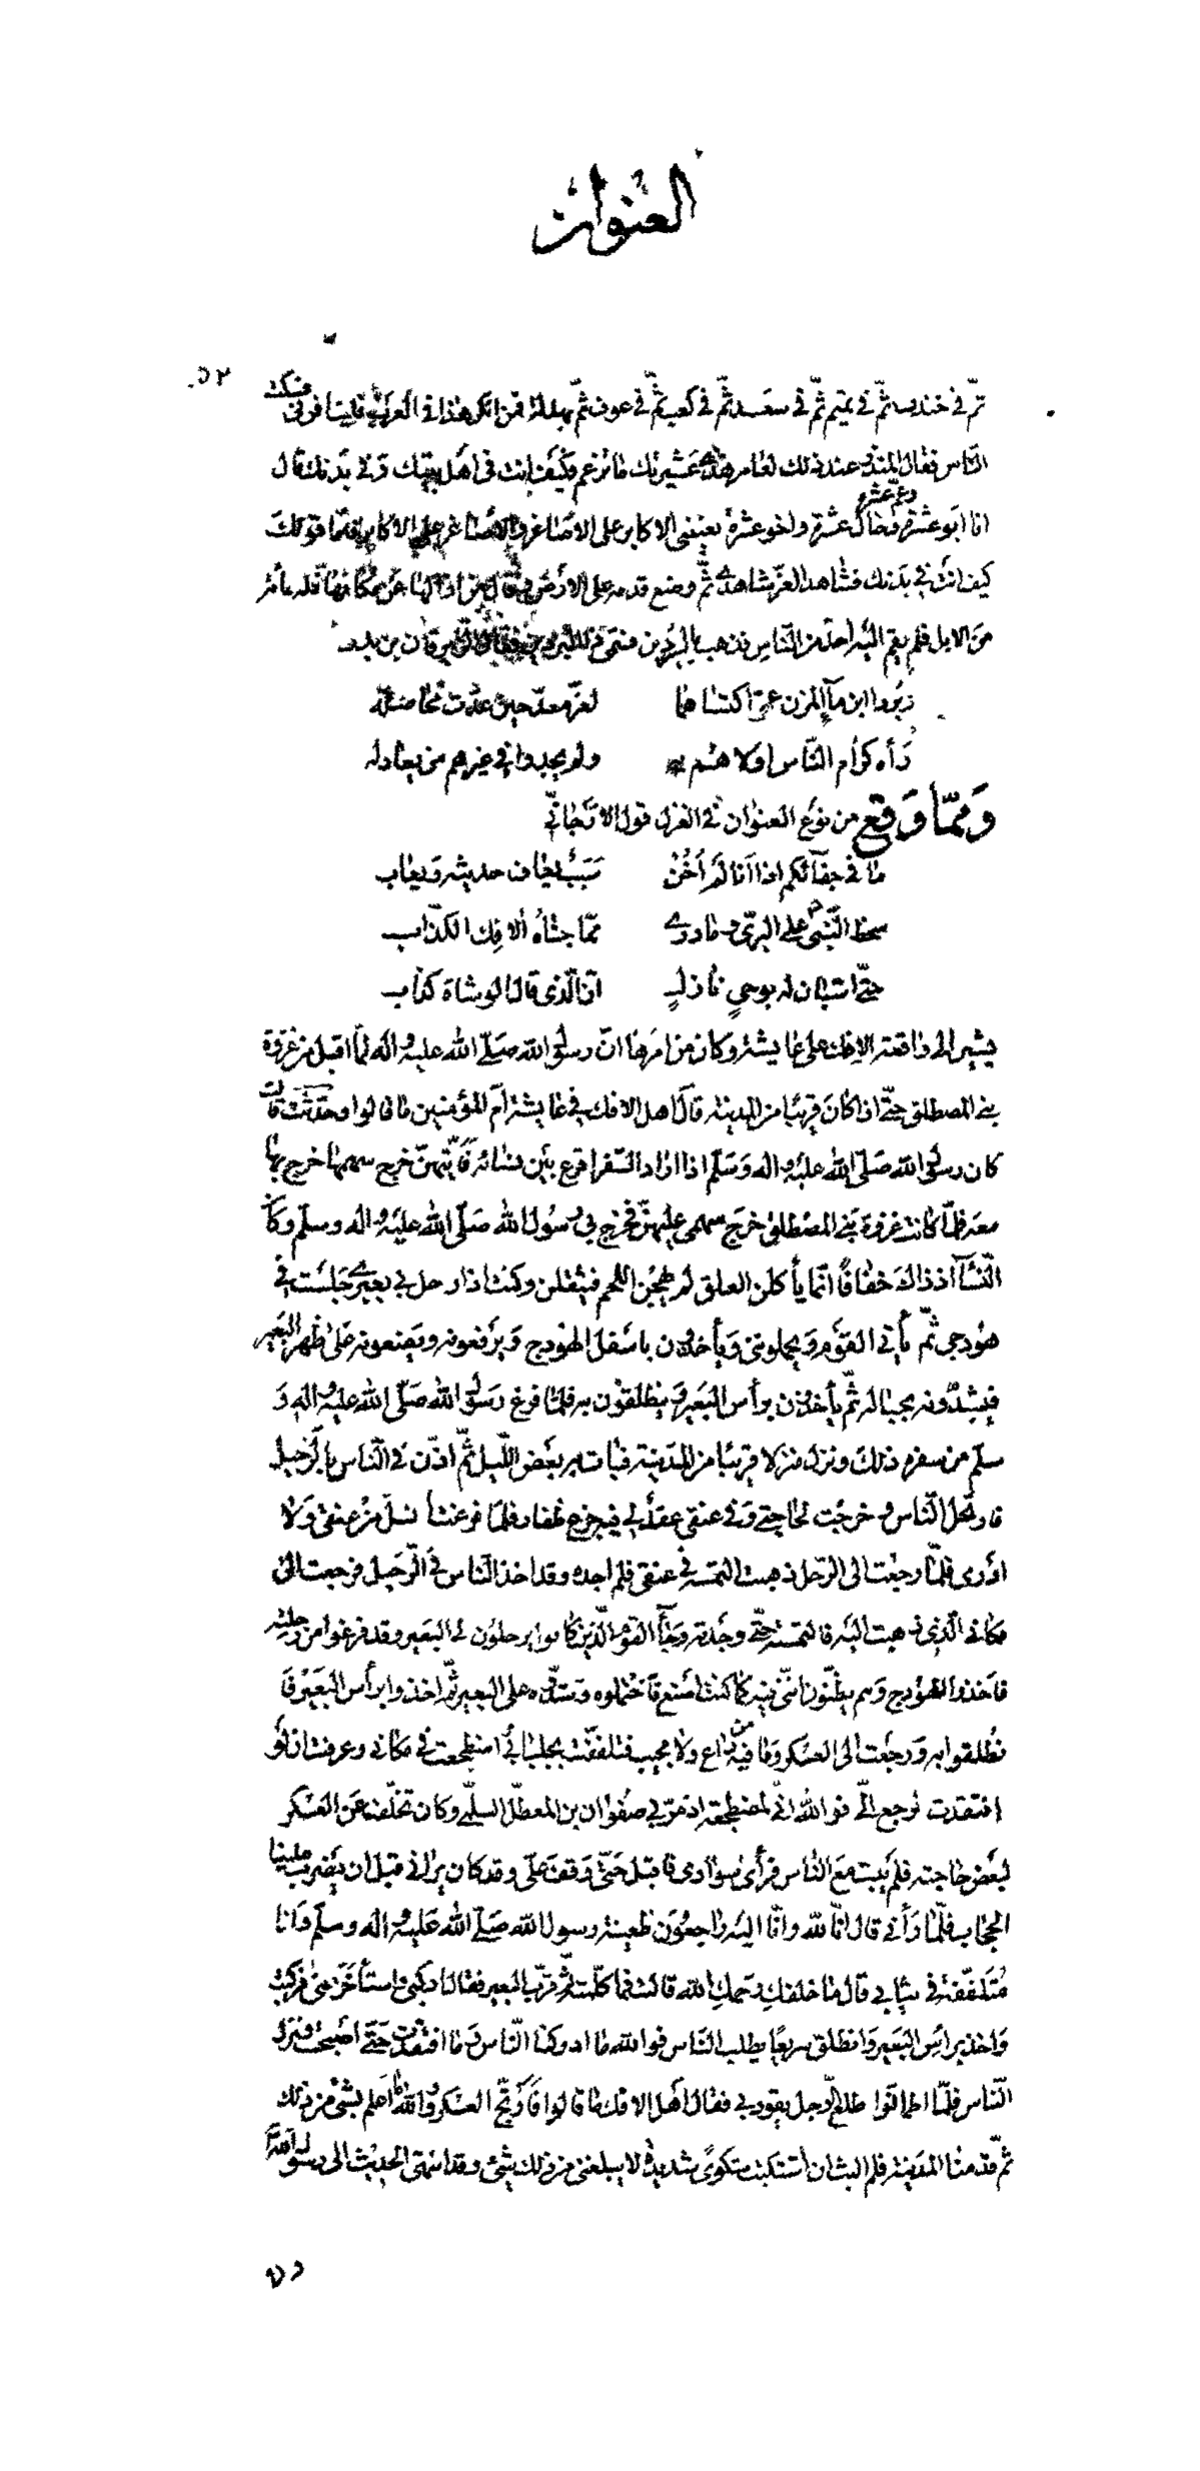 العنوان
٥٢
ثمّ في خندف ثمّ في تميم ثمّ في سعد ثمّ في كعب ثمّ في عوف ثمّ بهدلة فمن انكر هذا في العرب فلينافرني فسكت
النّاس فقال المنذر عند ذلك لعامر هذه عشيرتك كما تزعم فكيف انت في اهل بيتك وفي بدنك قال
انا ابو عشرة وخال عشرة وعم عشرة واخو عشرة يعيننى الاكابر على الاصاغر والاصاغر على الاكابر فامّا قولك
كيف انت في بدنك فشاهد العزّ شاهدي ثمّ وضع قدمه على الارض فقال من ازالها عن مكانها فله مأة
من الابل فلم يقم اليه احد من النّاس فذهب بالبردين الزبرقان بن بدر
وبردا ابن مآء المزن عمّى اكتساهما لعزّ معدّ حين عدّت محاصله
رأه كرام النّاس اولاهم به ولم يجدوا في غيرهم من يعادله
وَممّا وَقع من نوع العنوان في الغزل قول الارّجانيّ
ما في جفائكم اذا انا لم أخن سبب يعاف حديثه ويعاب
سخط النّبى على البرّى وما درى ممّا جناه الافك الكذّاب
حتّى استبان له بوحي نازل انّ الّذى قال الوشاة كذاب
يشير الى واقعة الافك على عايشة وكان من امرها انّ رسول الله صلّى الله عليه واله لمّا اقبل من غزوة
بنى المصطلق حتّى اذا كان قريبا من المدينة قال اهل الافك في عايشة ام المؤمنين ما قالوا وحدّثت قالت
كان رسول الله صلّى الله عليه واله وسلّم اذا اراد السّفر اقرع بين نسائه فايّتهنّ خرج سهمها خرج بها
معه فلمّا كانت غزوة بنى المصطلق خرج سهمى عليهنّ فخرج بي رسول الله صلّى الله عليه واله وسلّم وكان
النّسآء اذ ذاك خفافًا انّما يأكلن العلق لم يهجهنّ اللحم فيثقلن وكنت اذا رحل لي بعيري جلست في
هودجي ثمّ يأتي القوم ويحملونني ويأخذون باسفل الهودج ويرفعونه ويضعونه على ظهر البعير
فيشدّونه بحباله ثمّ يأخذون برأس البعير وينطلقون به فلمّا فرغ رسول الله صلّى الله عليه واله و
سلّم من سفره ذلك ونزل منزلا قريبا من المدينة فبات به بعض اللّيل ثمّ اذّن في النّاس بالرّحيل
فارتحل النّاس وخرجت لحاجتي وفي عنقي عقد لي فيه جزع ظفار فلمّا فرغت انسلّ من عنقي ولا
ادرى فلمّا رجعت الى الرّحل ذهبت التمسه في عنقي فلم اجده وقد اخذ النّاس في الرّحيل فرجعت الى
مكاني الّذي ذهبت اليه فالتمسته حتّى وجدته وجاء القوم الّذين كانوا يرحلون لي البعير وقد فرغوا من رحلته
فاخذوا الهودج وهم يظنّون انّي فيه كما كنت اصنع فاحتملوه وشدّوه على البعير ثمّ اخذوا برأس البعير فا
نطلقوا به ورجعت الى العسكر وما فيه من داع ولا مجيب فتلففت بجلبابي ثم اضطجعت في مكاني وعرفت ان لو
افتقدت لرجع الىّ فوالله انّي لمضطجعة اذ مرّ بي صفوان بن المعطل السلمي وكان تخلّف عن العسكر
لبعض حاجته فلم يبت مع النّاس فرأى سوادى فاقبل حتّى وقف علىّ وقد كان يراني قبل ان يضرب علينا
الحجاب فلمّا رأني قال انّا لله وانّا اليه راجعون ظعينة رسول الله صلّى الله عليه واله وسلّم وانا
متلفّفة في ثيابي قال ما خلفك رحمك الله قالت فما كلّمته ثمّ قرّب البعير فقال اركبي واستأخر عنّي فركبت
واخذ برأس البعير وانطلق سريعا يطلب النّاس فوالله ما ادركنا النّاس وما افتقدت حتّى اصبحت ونزل
النّاس فلمّا اطمأنّوا طلع الرّجل يقود بي فقال اهل الافك ما قالوا فارتجّ العسكر والله ما اعلم بشئ من ذلك
ثمّ قدمنا المدينة فلم البث ان اشتكيت شكوى شديدة لا يبلغني من ذلك شئ وقد انتهى الحديث الى رسول الله